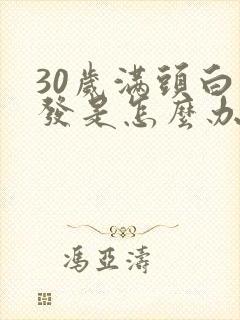 30歲滿頭白
發是怎麼办
馮亞濤